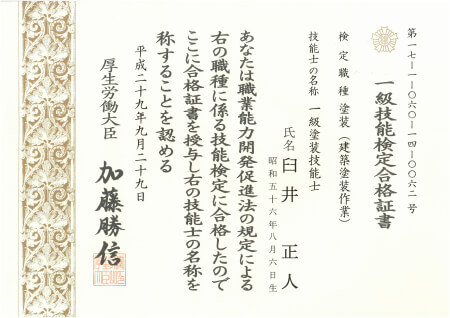 第一七-一-〇六〇-一四-〇〇六二号
一級技能検定合格証書
検定職種 塗装(建築塗装作業)
技能士の名称 一級塗装技能士
氏名 臼井 正人
昭和五十六年八月六日生
あなたは職業能力開発促進法の規定による
右の職種に係る技能検定に合格したので
ここに合格証書を授与し右の技能士の名称を
称することを認める
平成二十九年九月二十九日
厚生労働大臣 加藤勝信